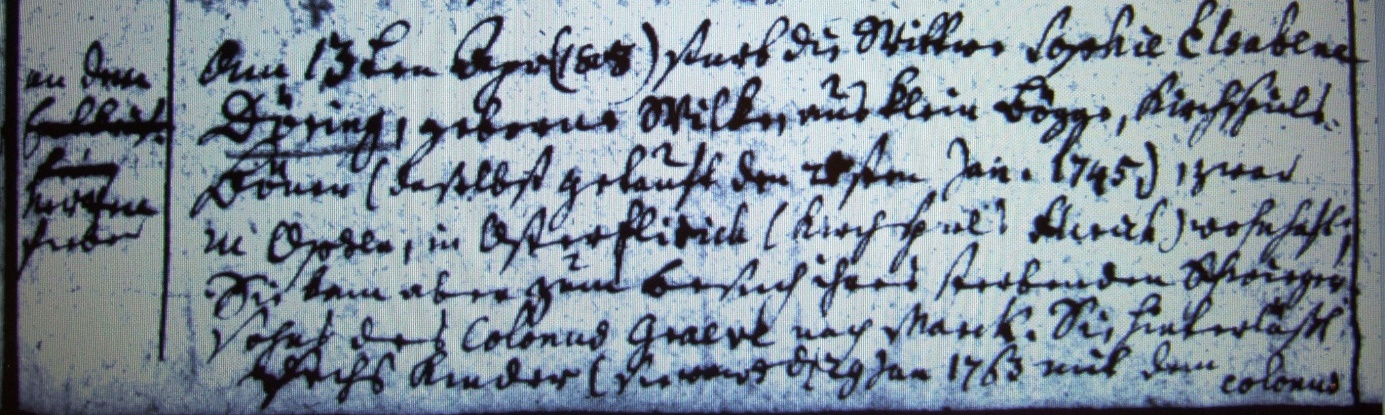 an dem
hitzigen
fieber
Am 13ten Apr (1808) starb die Wittwe Sophie Elsabena
Döring, geborne Wilke, aus klein Bögge, Kirchspiels
Böner (daselbst getauft den Jan. 1745), zwar
in in Osterflierich (Kirchspiels Flierich) wohnhaft,
Sie kam aber zum besuch ihres sterbenden Schwieger
sohns des Colonus Graeve nach Marck. Sie hinterläßt
sechs Kinder (Sie ward d. 29 Jan 1763 mit dem colonus